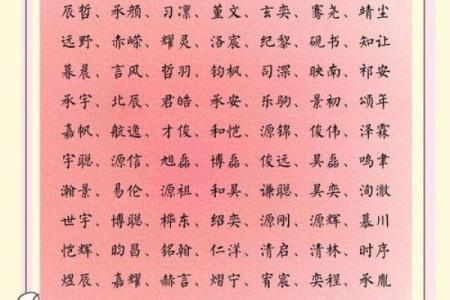 辰哲、承颁、习凛、董文、玄奕、骞尧、靖尘
远野、赤嵘、耀灵、洛宸、纪黎、砚书、知让
暮晨、言风、哲羽、钧枫、司深、映南、祁安
承宇、北辰、君皓、承安、乐驹、景初、颂年
嘉帆、航逸、才俊、和恺、源锦、俊伟、泽霖
宇聪、源信、旭磊、博磊、俊远、昊磊、鸣聿
瀚景、易伦、源祖、和昊、谦聪、昊奕、洵澈
世宇、博聪、桦东、绍奕、源刚、源辉、慕川
恺辉、昀昌、铭翰、仁洋、清启、清林、时序
煜辰、嘉耀、赫言、熠宁、宥宸、奕程、承胤